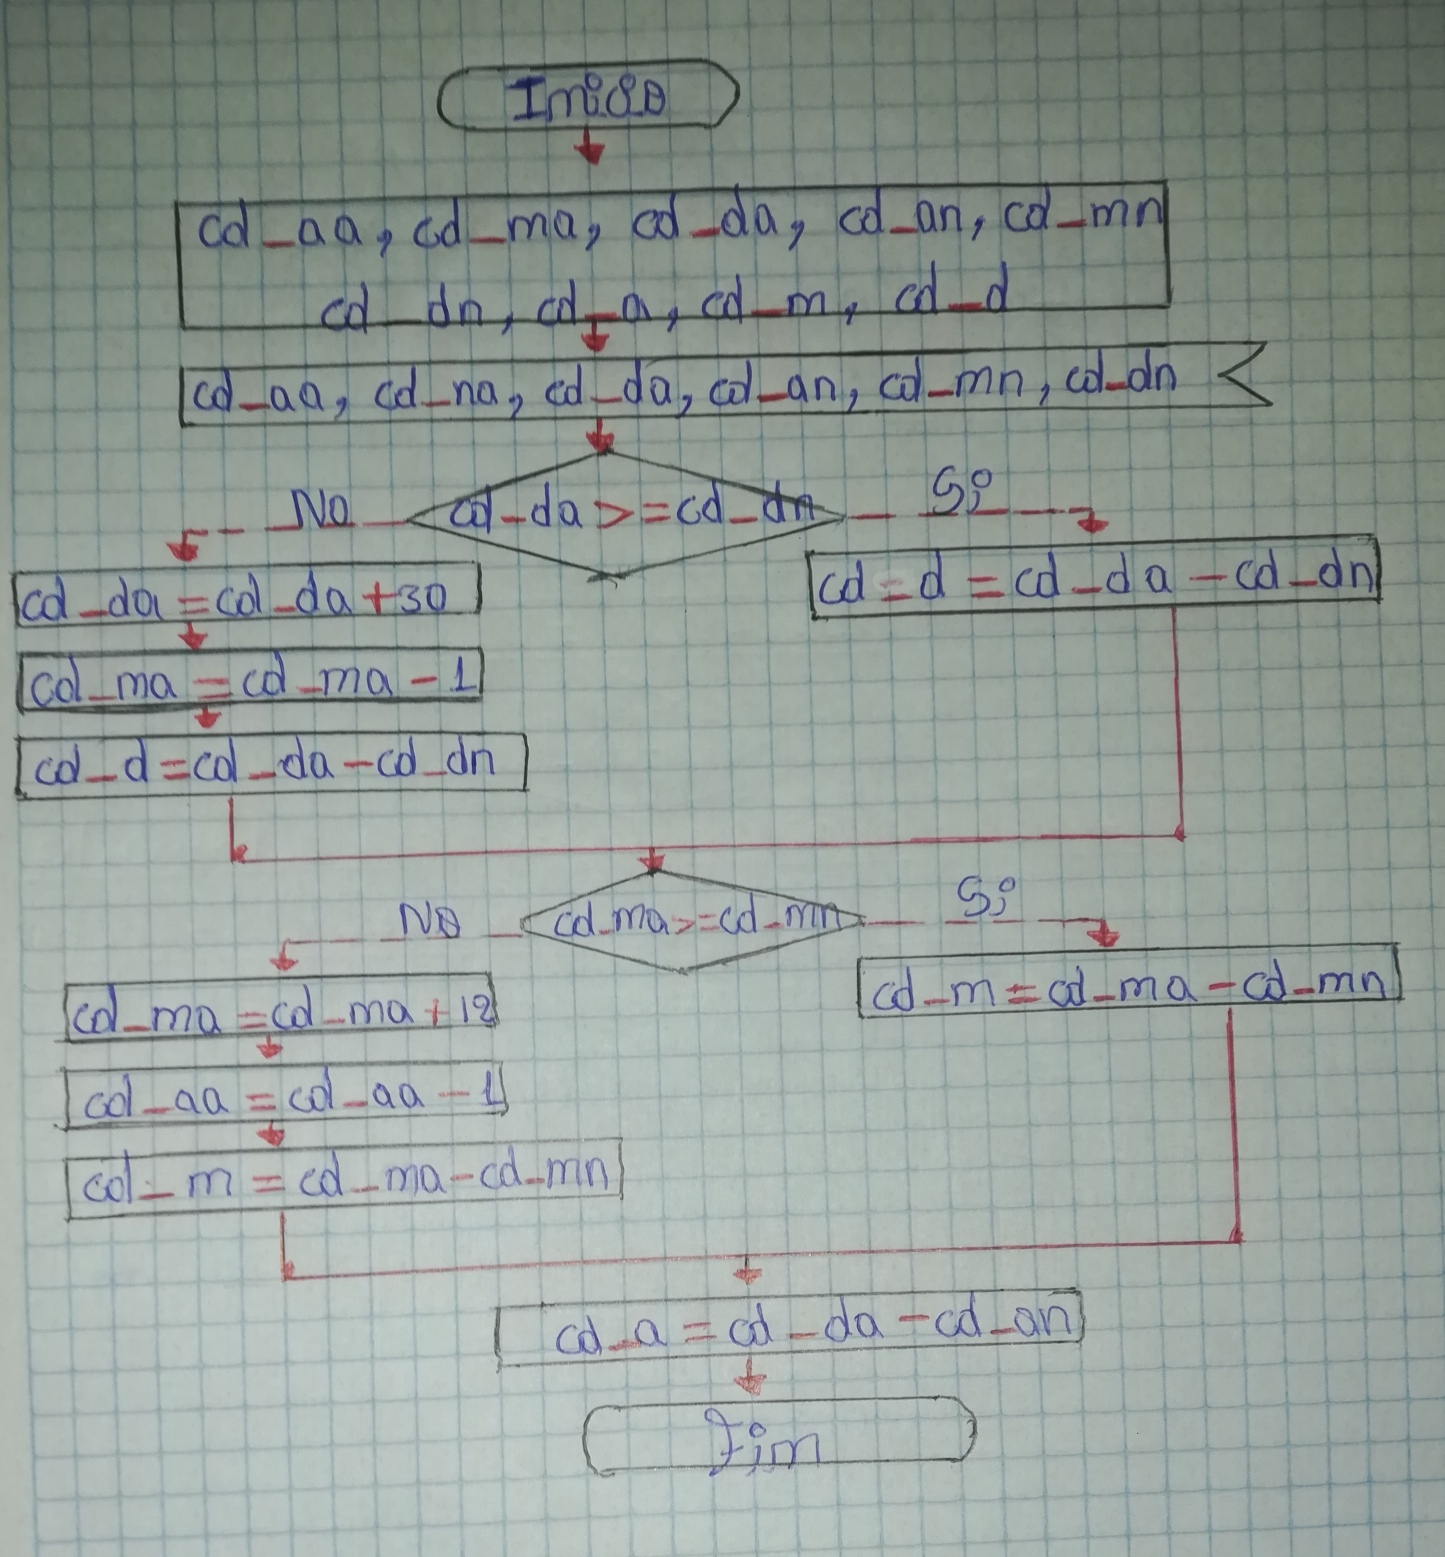 Inicio
cd_aa, cd_ma, cd_da, cd_an, cd_mn
cd_dn, cd_a, cd_m, cd_d
cd_aa, cd_na, cd_da, cd_an, cd_mn, cd_dn
cd_da >= cd_dn
No
Si
cd_da = cd_da + 30
cd_ma = cd_ma - 1
cd_d = cd_da - cd_dn
cd = d = cd_da - cd_dn
cd_ma >= cd_mn
No
Si
cd_ma = cd_ma + 12
cd_aa = cd_aa - 1
cd_m = cd_ma - cd_mn
cd_m = cd_ma - cd_mn
cd_a = cd_da - cd_an
Fin